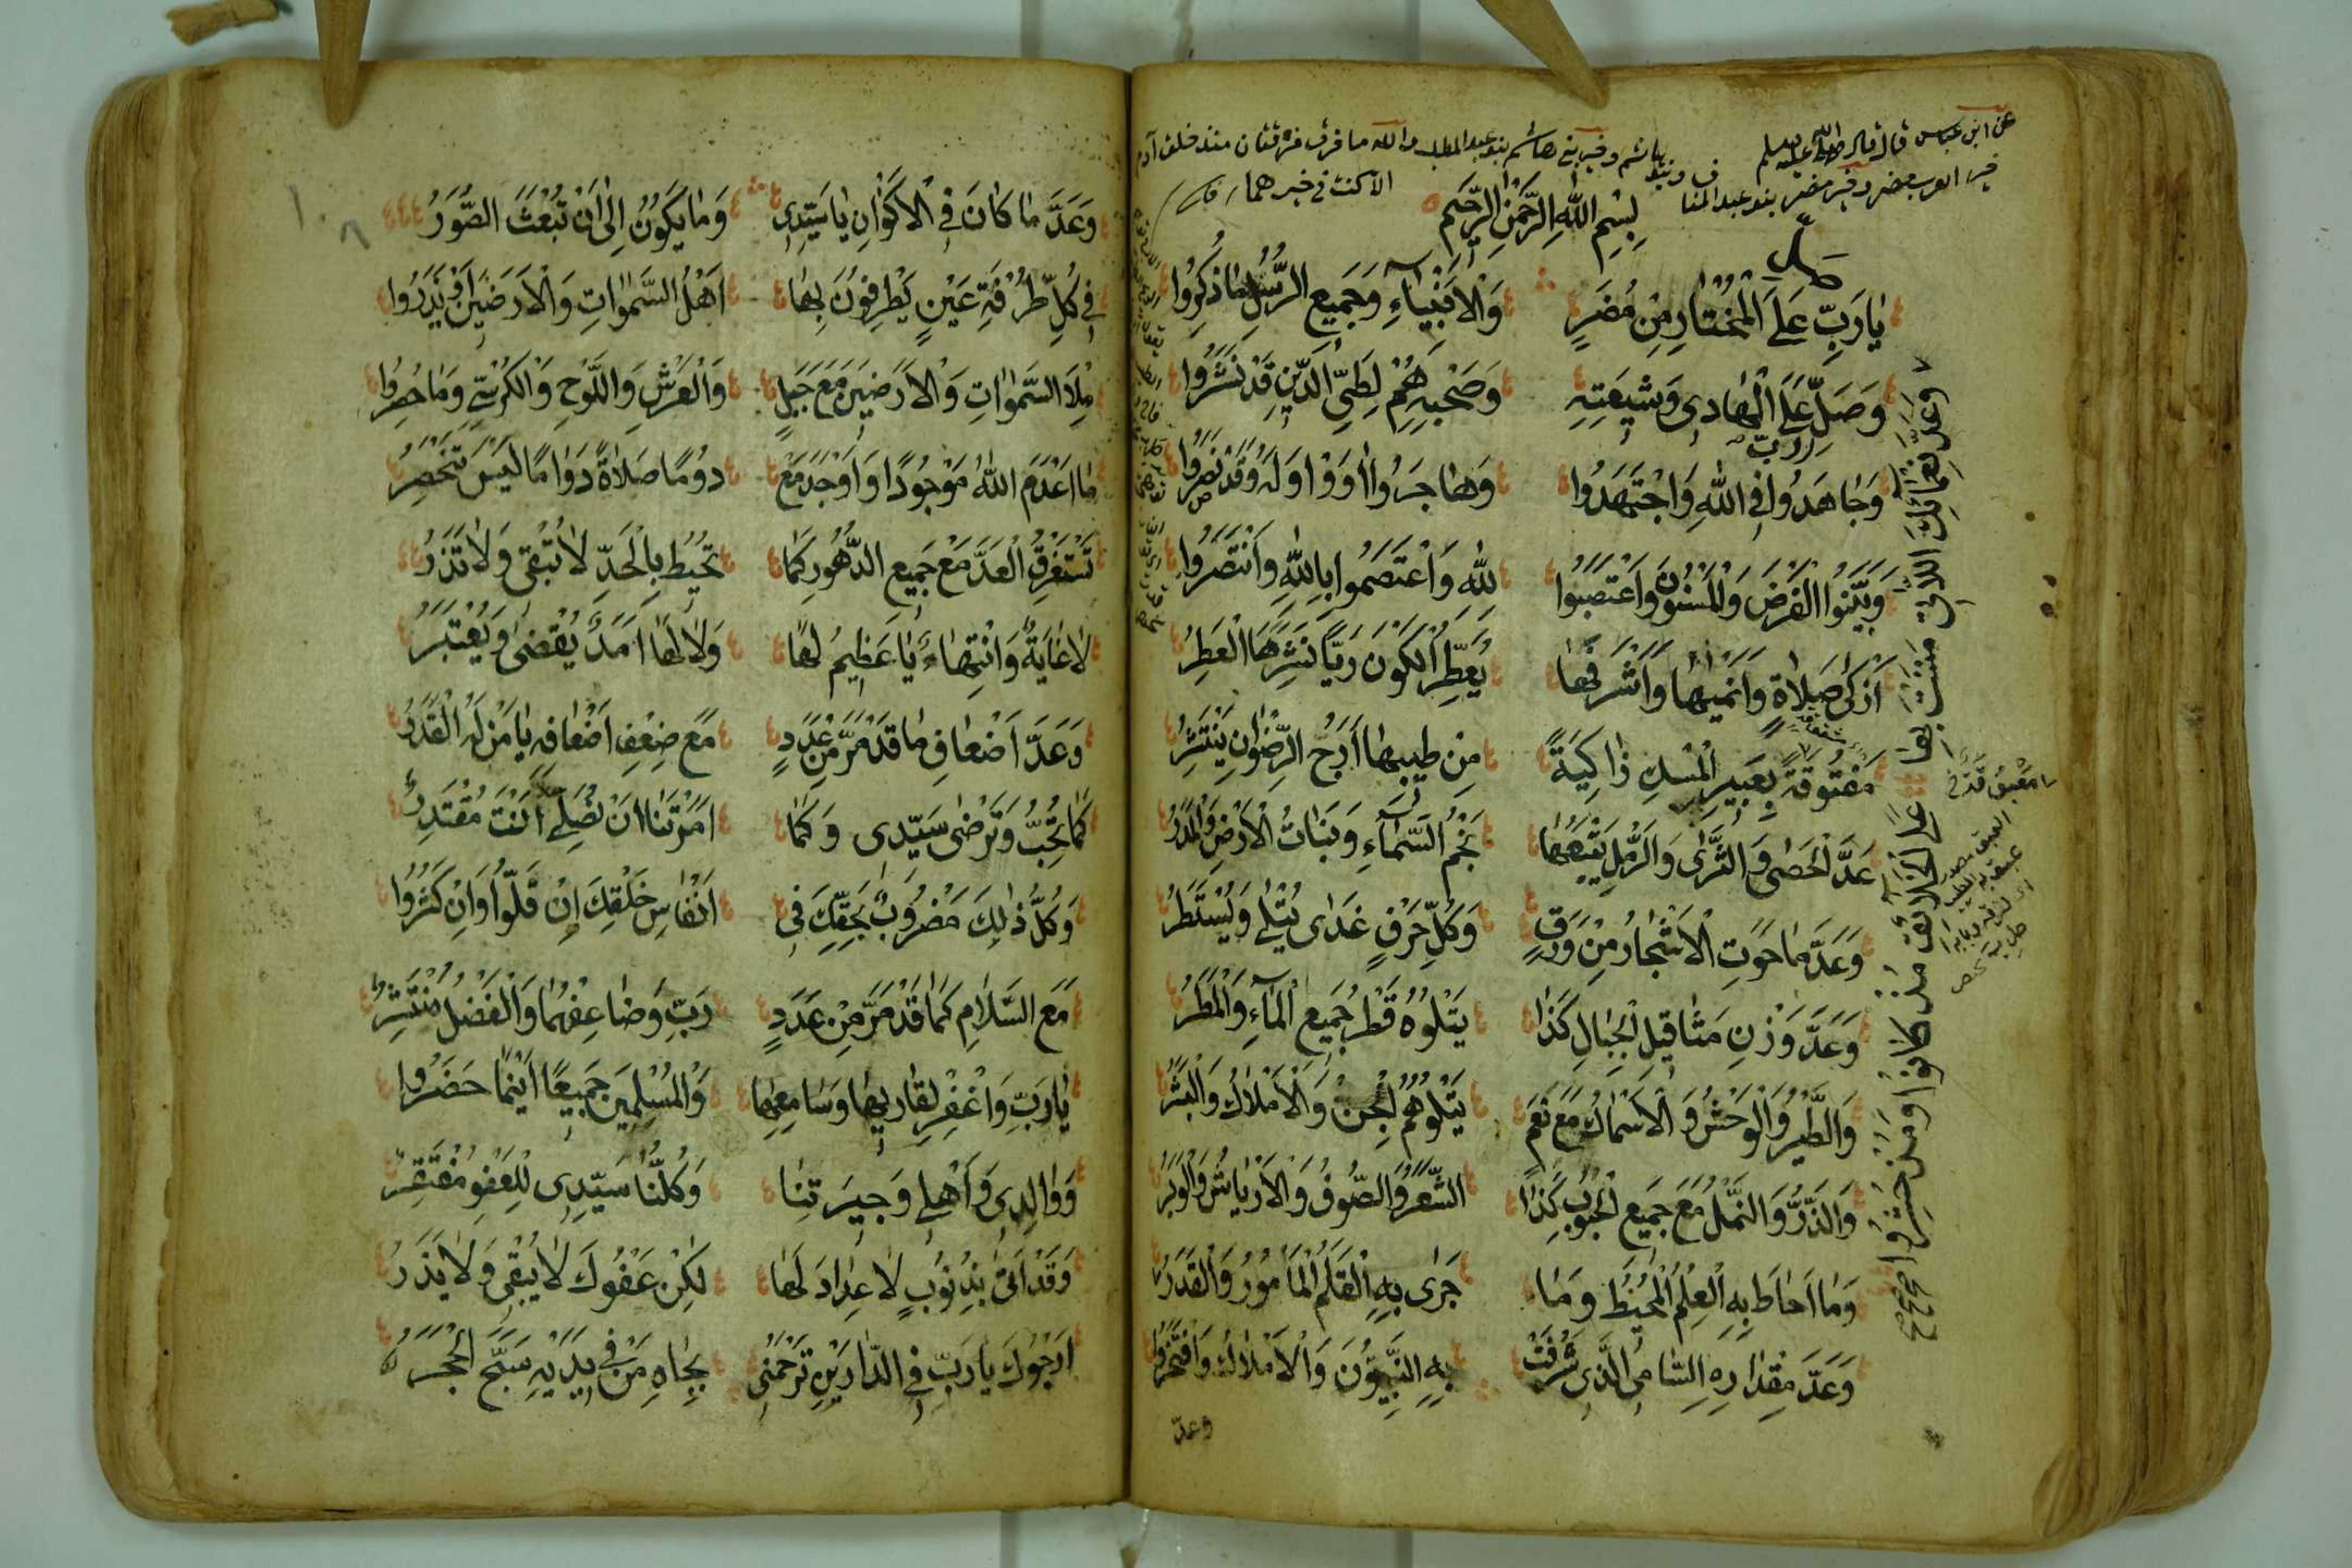 عن ابن عباس قال قال صلى الله عليه وسلم
خير العرب مضر وخير مضر بنو عبد المناف وخير بنو هاشم وخير بني هاشم بنو عبد المطلب والله ما فرق فرقتان منذ خلق آدم
الا كنت في خيرهما
بِسْمِ اللهِ الرَّحْمٰنِ الرَّحِيمِ
صل
يَا رَبِّ عَلَى الْمُخْتَارِ مِنْ مُضَرٍ وَالْاَنْبِيَاءِ وَجَمِيعِ الرُّسْلِ مَا ذُكِرُوا
وَصَلِّ عَلَى الْهَادِي وَشِيعَتِهِ وَصَحْبِهِ هُمْ لِطَيِّ الدِّينِ قَدْ نَشَرُوا
وَجَاهَدُوا فِي اللهِ وَاجْتَهَدُوا وَهَاجَرُوا اوَوْا وَلَهُ وَقَدْ نَصَرُوا
وَبَيَّنُوا الْفَرْضَ وَالْمَسْنُونَ وَاعْتَصَبُوا لِلّٰهِ وَاعْتَصَمُوا بِاللهِ وَانْتَصَرُوا
اَزْكٰى صَلَاةٍ وَاَنْمِيهَا وَاَشْرَفُهَا يُعَطِّرُ الْكَوْنَ رَيًّا نَشْرُهَا الْعَطِرُ
مَفْتُوقَةً بِعَبِيرِ الْمِسْكِ ذَاكِيَةً مِنْ طِيبِهَا اَرَجُ الرِّضْوَانِ يَنْتَشِرُ
عَدَّ الْحَصٰى وَالثَّرٰى وَالرَّمْلِ يَتْبَعُهَا نَجْمُ السَّمَاءِ وَنَبَاتُ الْاَرْضِ وَالْمَدَرُ
وَعَدَّ مَا حَوَتِ الْاَشْجَارُ مِنْ وَرَقٍ وَكُلِّ حَرْفٍ غَدٰى يُتْلٰى وَيُسْتَطَرُ
وَعَدَّ وَزْنِ مَثَاقِيلِ الْجِبَالِ كَذَا يَتْلُوهُ قَطْرُ جَمِيعِ الْمَاءِ وَالْمَطَرُ
وَالطَّيْرُ وَالْوَحْشُ وَالْاَسْمَاكُ مَعْ نَعَمٍ يَتْلُوهُمُ الْجِنُّ وَالْاَمْلَاكُ وَالْبَشَرُ
وَالذَّرُّ وَالنَّمْلُ مَعَ جَمِيعِ الْحُبُوبِ كَذَا الشَّعْرُ وَالصُّوفُ وَالْاَرْيَاشُ وَالْوَبَرُ
وَمَا اَحَاطَ بِهِ الْعِلْمُ الْمُحِيطُ وَمَا جَرٰى بِهِ الْقَلَمُ الْمَأْمُورُ وَالْقَدَرُ
وَعَدَّ مِقْدَارِهِ السَّامِي الَّذِي شَرُفَتْ بِهِ النَّبِيُّونَ وَالْاَمْلَاكُ وَافْتَخَرُوا
وعد
وَعَدَّ نَعْمَائِكَ اللَّاتِي مَنَنْتَ بِهَا عَلَى الْخَلَائِقِ مُذْ كَانُوا وَمُذْ حُشِرُوا صح صح
وَعَدَّ مَا كَانَ فِي الْاَكْوَانِ يَا سَيِّدِي وَمَا يَكُونُ اِلٰى اَنْ تُبْعَثَ الصُّوَرُ
فِي كُلِّ طُرْفَةِ عَيْنٍ يَطْرِفُونَ بِهَا اَهْلُ السَّمٰوَاتِ وَالْاَرَضِينَ اَوْ يَذَرُوا
مِلْاَ السَّمٰوَاتِ وَالْاَرَضِينَ مَعَ جَبَلٍ وَالْعَرْشِ وَاللَّوْحِ وَالْكُرْسِيِّ وَمَا حَصَرُوا
مَا اَعْدَمَ اللهُ مَوْجُودًا وَاَوْجَدَ مَعْ دُومًا صَلَاةً دَوَامًا لَيْسَ تَنْحَصِرُ
تَسْتَغْرِقُ الْعَدَّ مَعْ جَمِيعِ الدُّهُورِ كَمَا تُحِيطُ بِالْحَدِّ لَا تُبْقِي وَلَا تَذَرُ
لَا غَايَةً وَانْتِهَاءً يَا عَظِيمُ لَهَا وَلَا لَهَا اَمَدٌ يُقْضٰى وَيُعْتَبَرُ
وَعَدَّ اَضْعَافِ مَا قَدْ مَرَّ مِنْ عَدَدٍ مَعْ ضِعْفِ اَضْعَافِهِ يَا مَنْ لَهُ الْقَدَرُ
كَمَا تُحِبُّ وَتَرْضٰى سَيِّدِي وَكَمَا اَمَرْتَنَا اَنْ نُصَلِّي اَنْتَ مُقْتَدِرُ
وَكُلُّ ذٰلِكَ مَضْرُوبٌ بِحَقِّكَ فِي اَنْفَاسِ خَلْقِكَ اِنْ قَلُّوا وَاِنْ كَثُرُوا
مَعَ السَّلَامِ كَمَا قَدْ مَرَّ مِنْ عَدَدٍ رَبِّ وَضَاعِفْهُمَا وَالْفَضْلُ مُنْتَشِرُ
يَا رَبِّ وَاغْفِرْ لِقَارِيهَا وَسَامِعِهَا وَالْمُسْلِمِينَ جَمِيعًا اَيْنَمَا حَضَرُوا
وَوَالِدِي وَاَهْلِي وَجِيرَتِنَا وَكُلُّنَا سَيِّدِي لِلْعَفْوِ مُفْتَقِرُ
وَقَدْ اَتٰى بِذُنُوبٍ لَا عِدَادَ لَهَا لٰكِنَّ عَفْوَكَ لَا يُبْقِي وَلَا يَذَرُ
اَرْجُوكَ يَا رَبِّ فِي الدَّارَيْنِ تَرْحَمُنِي بِجَاهِ مَنْ فِي يَدَيْهِ سَبَّحَ الْحَجَرُ